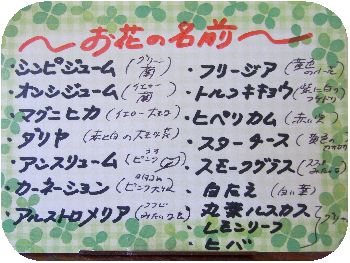 〜お花の名前〜
・シンビジューム(グリーン 蘭)
・オンシジューム(イエロー 蘭)
・マグニヒカ(イエロー 大)
・ダリヤ(赤と白の大)
・アンスリューム(ピンク)
・カーネーション(ピンク)
・アルストロメリア(みたいな)
・フリージア(黄色の)
・トルコキキョウ(紫に白の)
・ヒペリカム(赤い実)
・スターチース(黄色の)
・スモークグラス(ススキみたいな)
・白たえ(白い葉)
・丸葉ルスカス
・レモンリーフ
・ヒバ